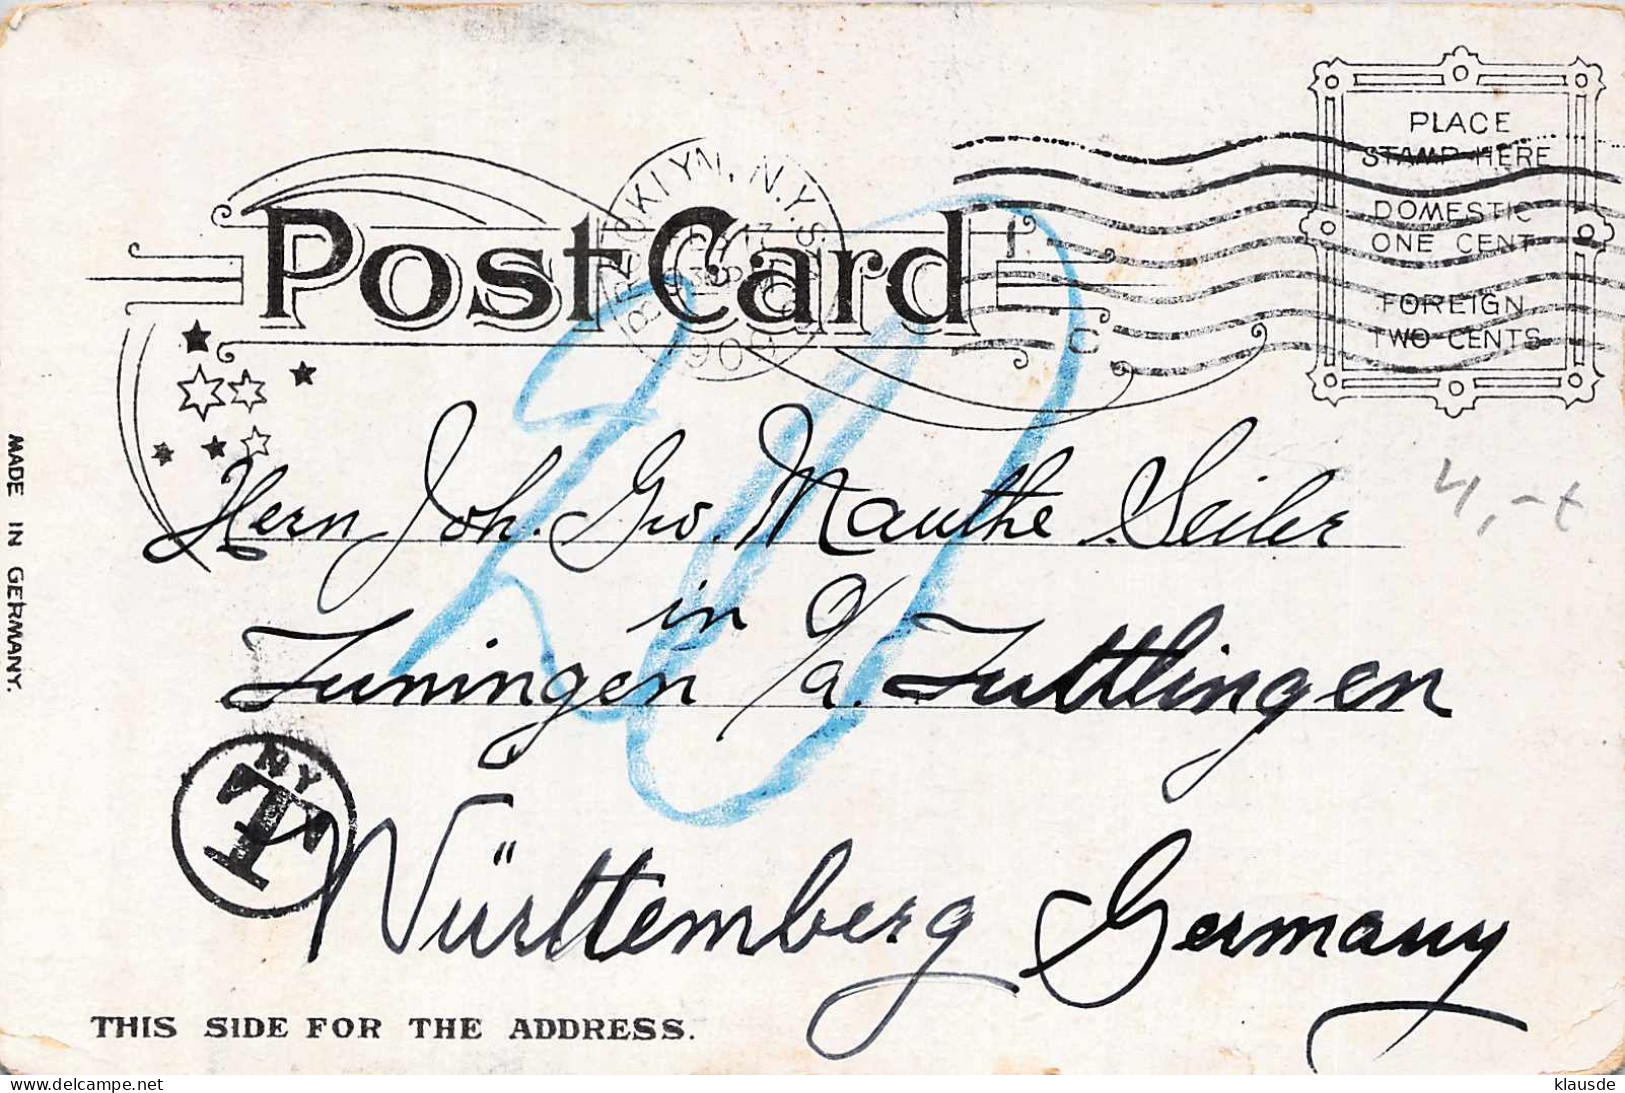 PLACE
STAMP HERE
DOMESTIC
ONE CENT
FOREIGN
TWO CENTS
BROOKLYN, N.Y.
Post Card
MADE IN GERMANY.
Herrn Joh. Geo. Mauthe Seiler
in
Tuningen O/a. Tuttlingen
NY
T
20
Württemberg Germany
THIS SIDE FOR THE ADDRESS.
https://www.delcampe.net
klausde